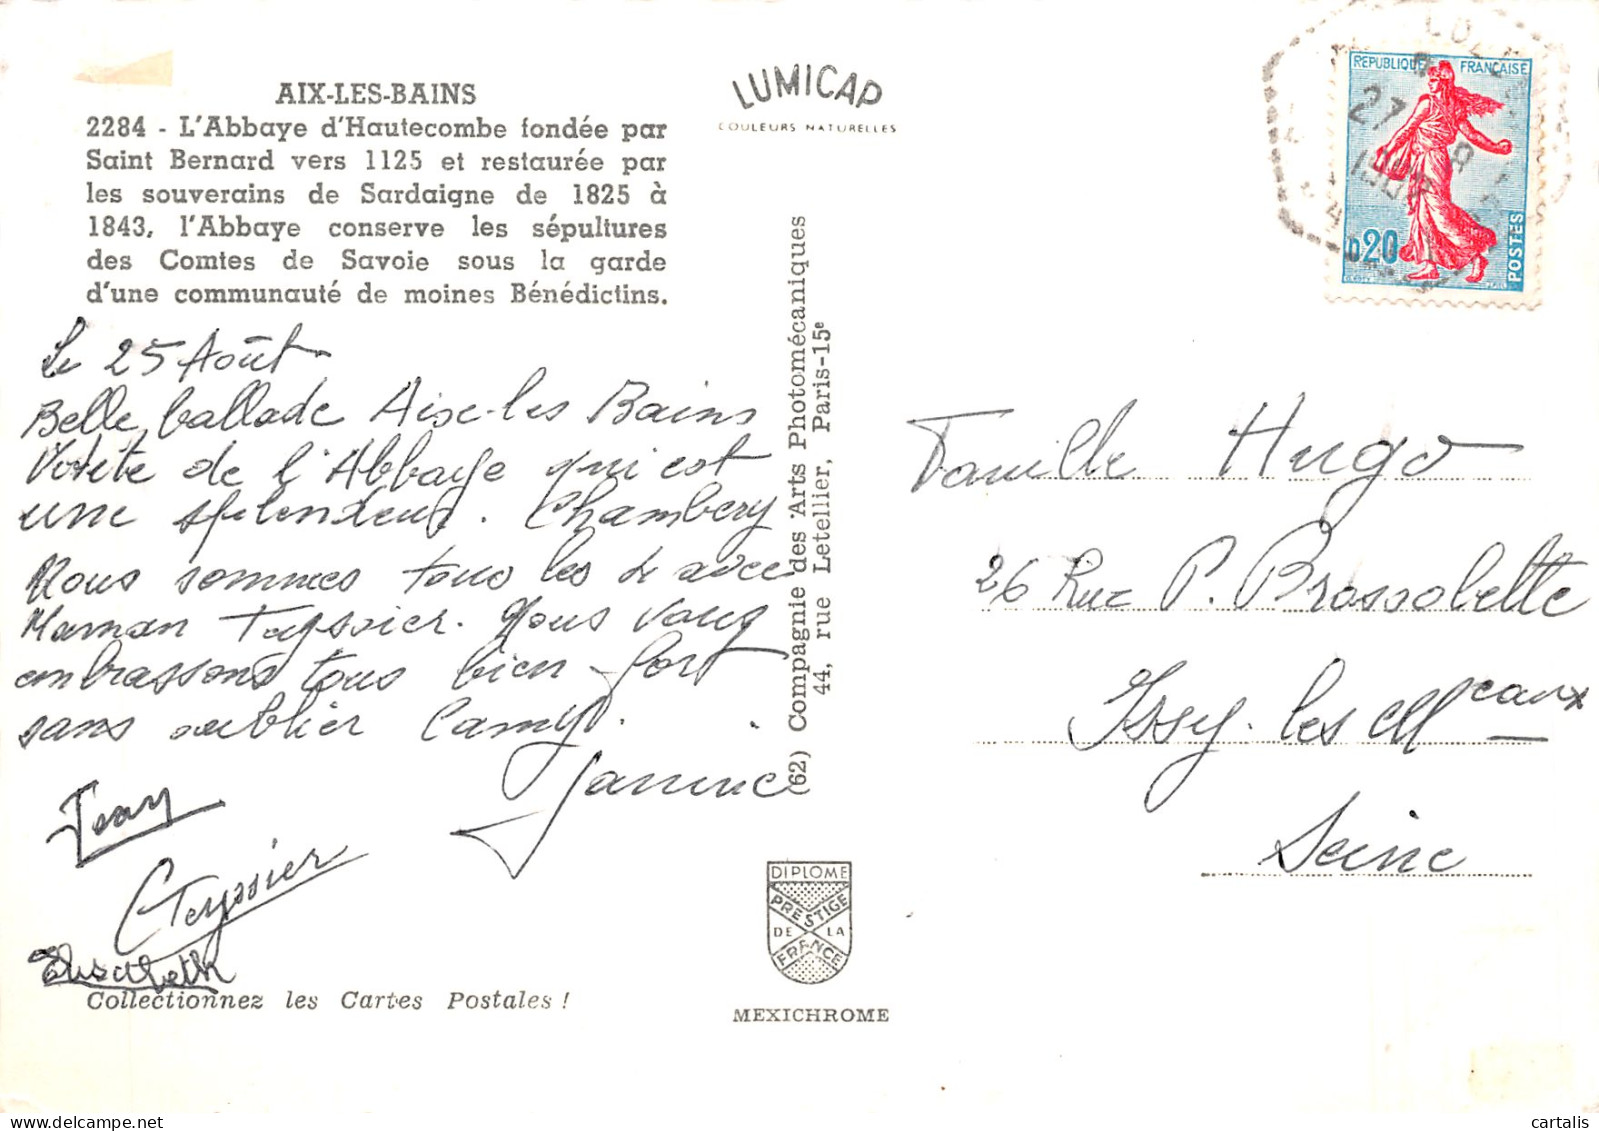 AIX-LES-BAINS
2284 - L'Abbaye d'Hautecombe fondée par
Saint Bernard vers 1125 et restaurée par
les souverains de Sardaigne de 1825 à
1843, l'Abbaye conserve les sépultures
des Comtes de Savoie sous la garde
d'une communauté de moines Bénédictins.
Le 25 Août
Belle ballade Aix-les Bains
Visite de l'Abbaye qui est
une splendeur. Chambery
Nous sommes tous les 4 avec
Maman Teyssier. Nous vous
embrassons tous bien fort
sans oublier Camy.
Janine
Jean
Teyssier
Elisabeth
Collectionnez les Cartes Postales !
LUMICAP
COULEURS NATURELLES
(62) Compagnie des Arts Photomécaniques
44, rue Letellier, Paris-15e
DIPLOME
PRESTIGE
DE LA
FRANCE
MEXICHROME
REPUBLIQUE FRANCAISE
27 8
0,20
POSTES
Famille Hugo
26 Rue P. Brossolette
Issy-les Mceaux
Seine
cartalis